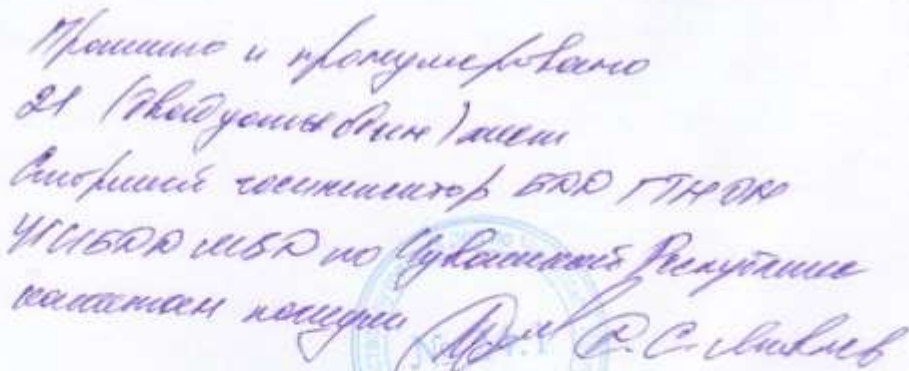 Прошито и пронумеровано
21 (двадцать один) лист
Старший госинспектор БДД ГТН ОН
УГИБДД МВД по Чувашской Республике
капитан полиции С.